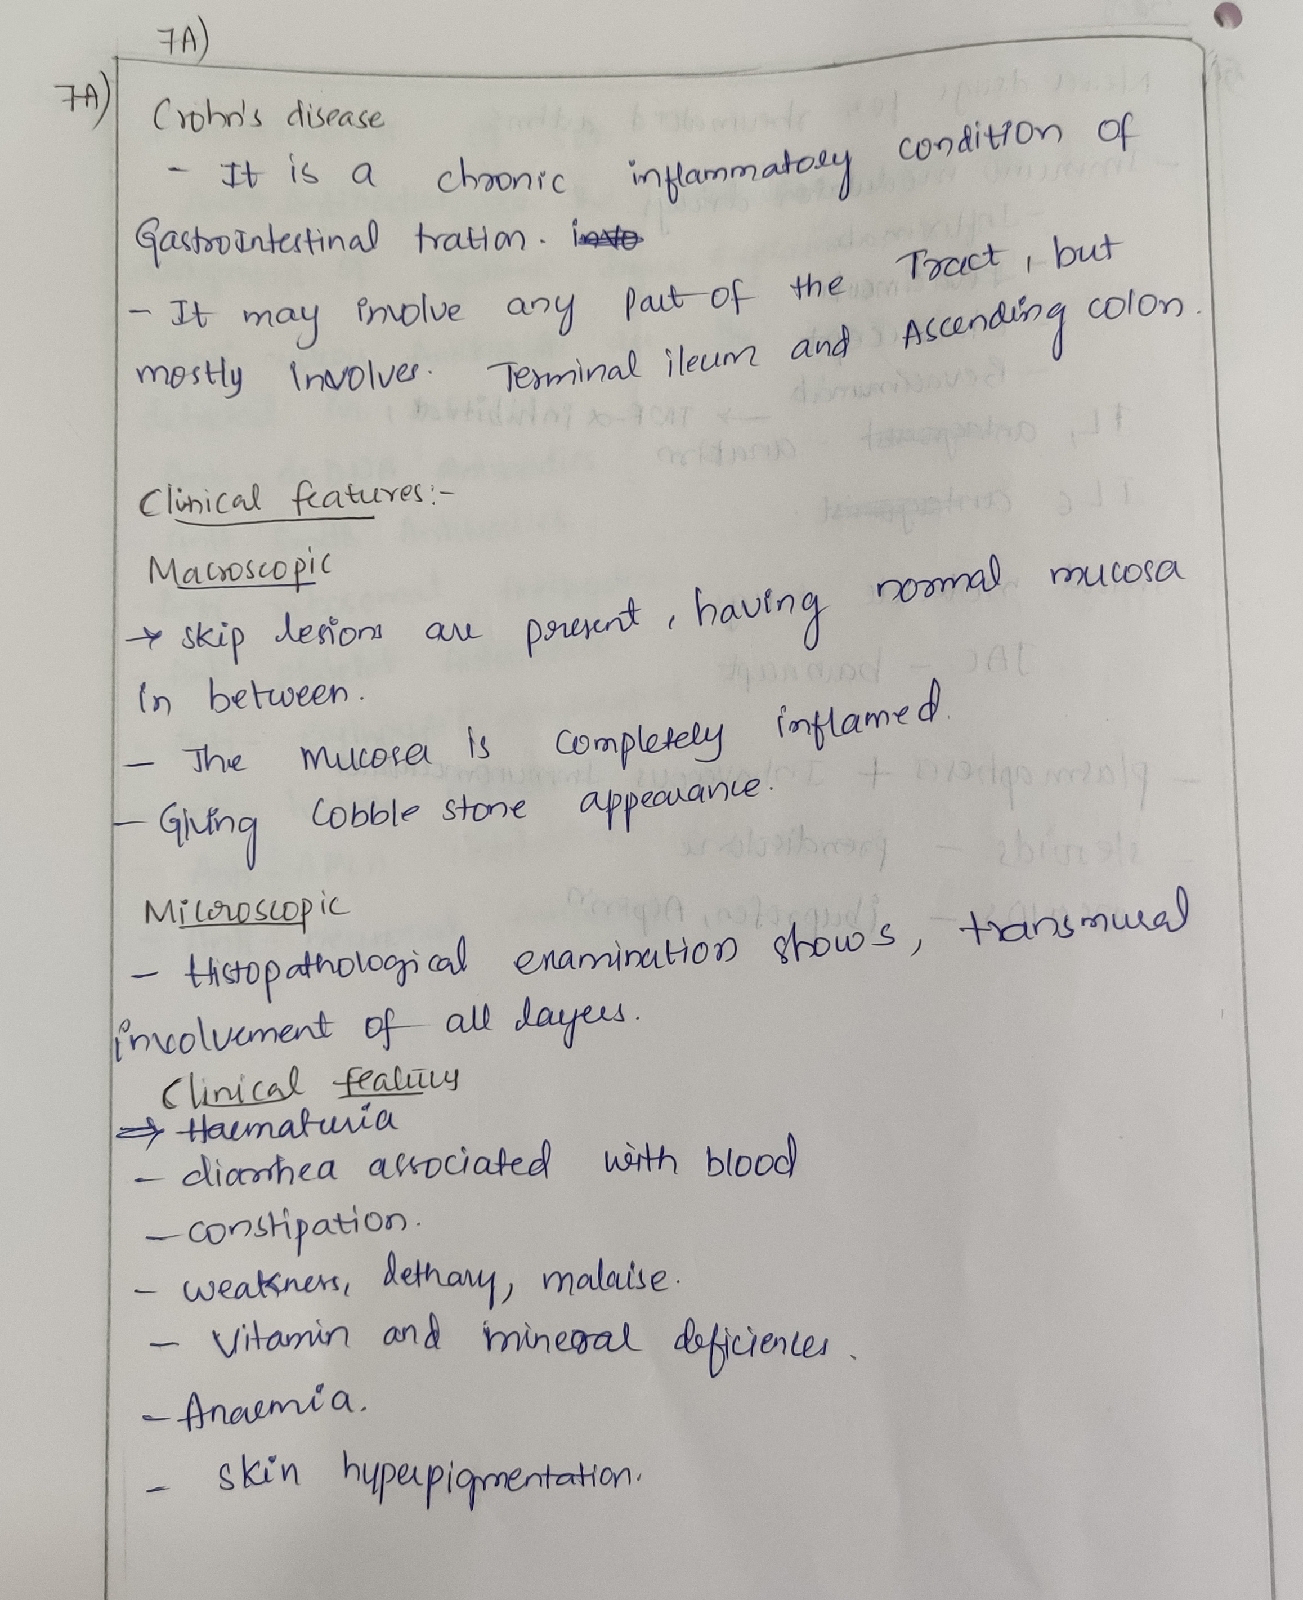 7A)
7A)
Crohn's disease
- It is a chronic inflammatory condition of
Gastrointestinal tration.
- It may involve any part of the Tract, but
mostly involves. Terminal ileum and Ascending colon.
Clinical features:-
Macroscopic
→ skip lesions are present, having normal mucosa
in between.
- The mucosa is completely inflamed.
- Giving Cobble stone appearance.
Microscopic
- Histopathological examination shows, transmural
involvement of all layers.
Clinical features
⇒ Haematuria
- diarrhea associated with blood
- constipation.
- weakness, lethargy, malaise.
- Vitamin and mineral deficiences.
- Anaemia.
- skin hyperpigmentation.